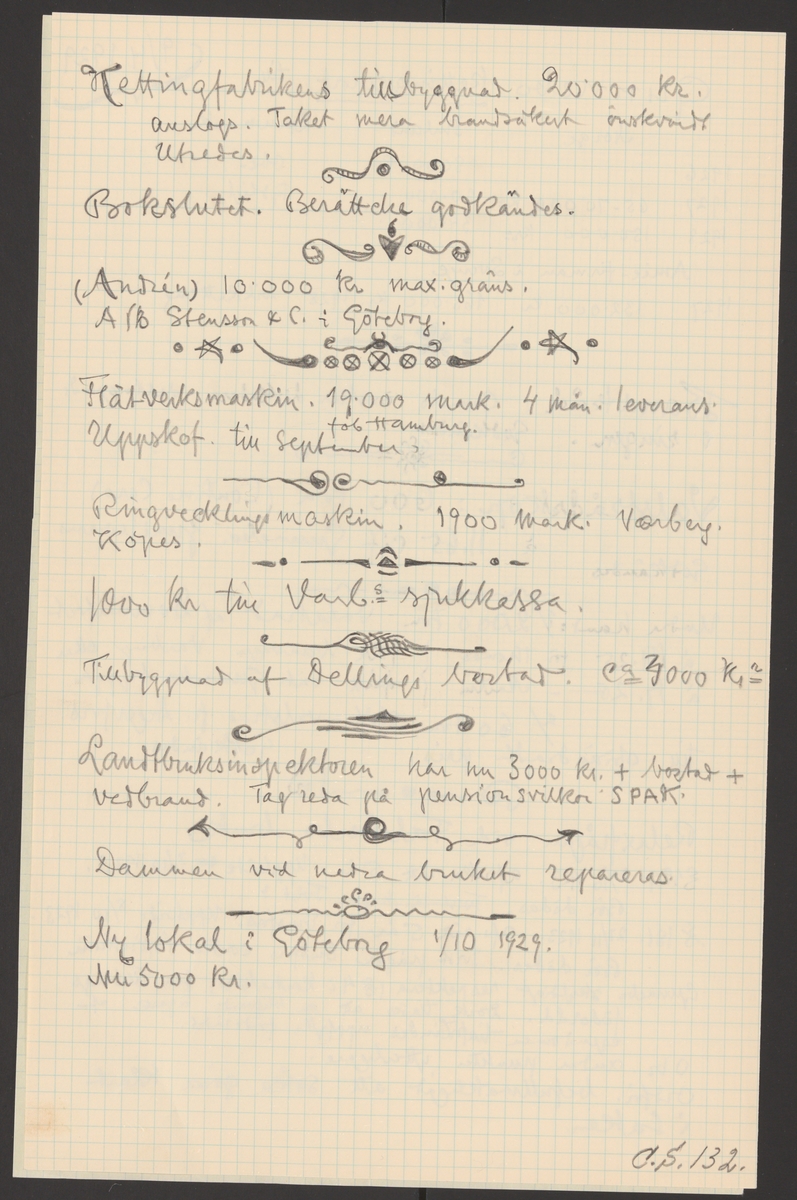 Kettingfabrikens tillbyggnad. 20.000 Kr.
anslogs. Taket mera brandsäkert önskvärdt
Utredes.
Bokslutet. Berättelse godkändes.
(Andrén) 10.000 Kr max.gräns.
A/B Stensson & C. i Göteborg.
Flätverksmaskin. 19.000 mark. 4 mån. leverans.
fob Hamburg.
Uppskof. till September.
Ringvecklingsmaskin. 1900 Mark. Varberg.
Köpes.
1000 Kr till Varb.s sjukkassa.
Tillbyggnad af Dellings bostad. Ca 4000 Kr
Landtbruksinspektoren har nu 3000 Kr. + bostad +
vedbrand. Tag reda på pensionsvilkor SPAK.
Dammen vid nedra bruket repareras.
Ny lokal i Göteborg 1/10 1929.
Nu 5000 Kr.
C.S. 132.